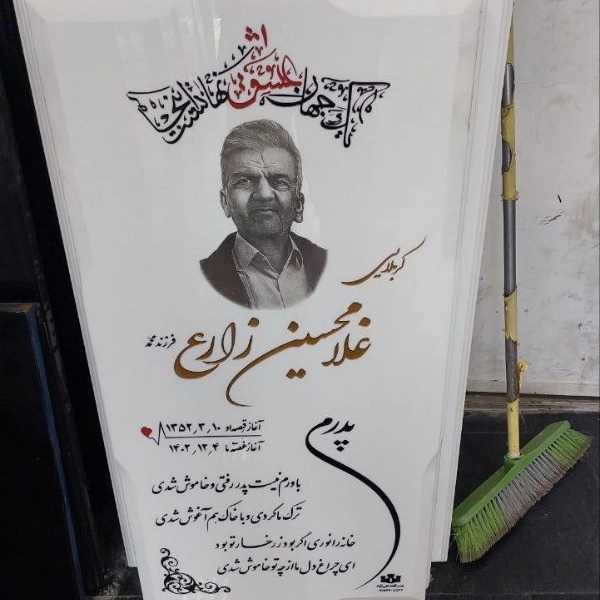 یک جهان عشق نهان است اینجا
کربلایی
غلامحسین زارع
فرزند محمد
آغاز قصه او ۱۳۵۲٫۳٫۱۰
آغاز غصه ما ۱۴۰۲٫۱۲٫۴
پدرم
باورم نیست پدر رفتی و خاموش شدی
ترک ما کردی و با خاک هم آغوش شدی
خانه را نوری اگر بود ز رخسار تو بود
ای چراغ دل ما از چه تو خاموش شدی